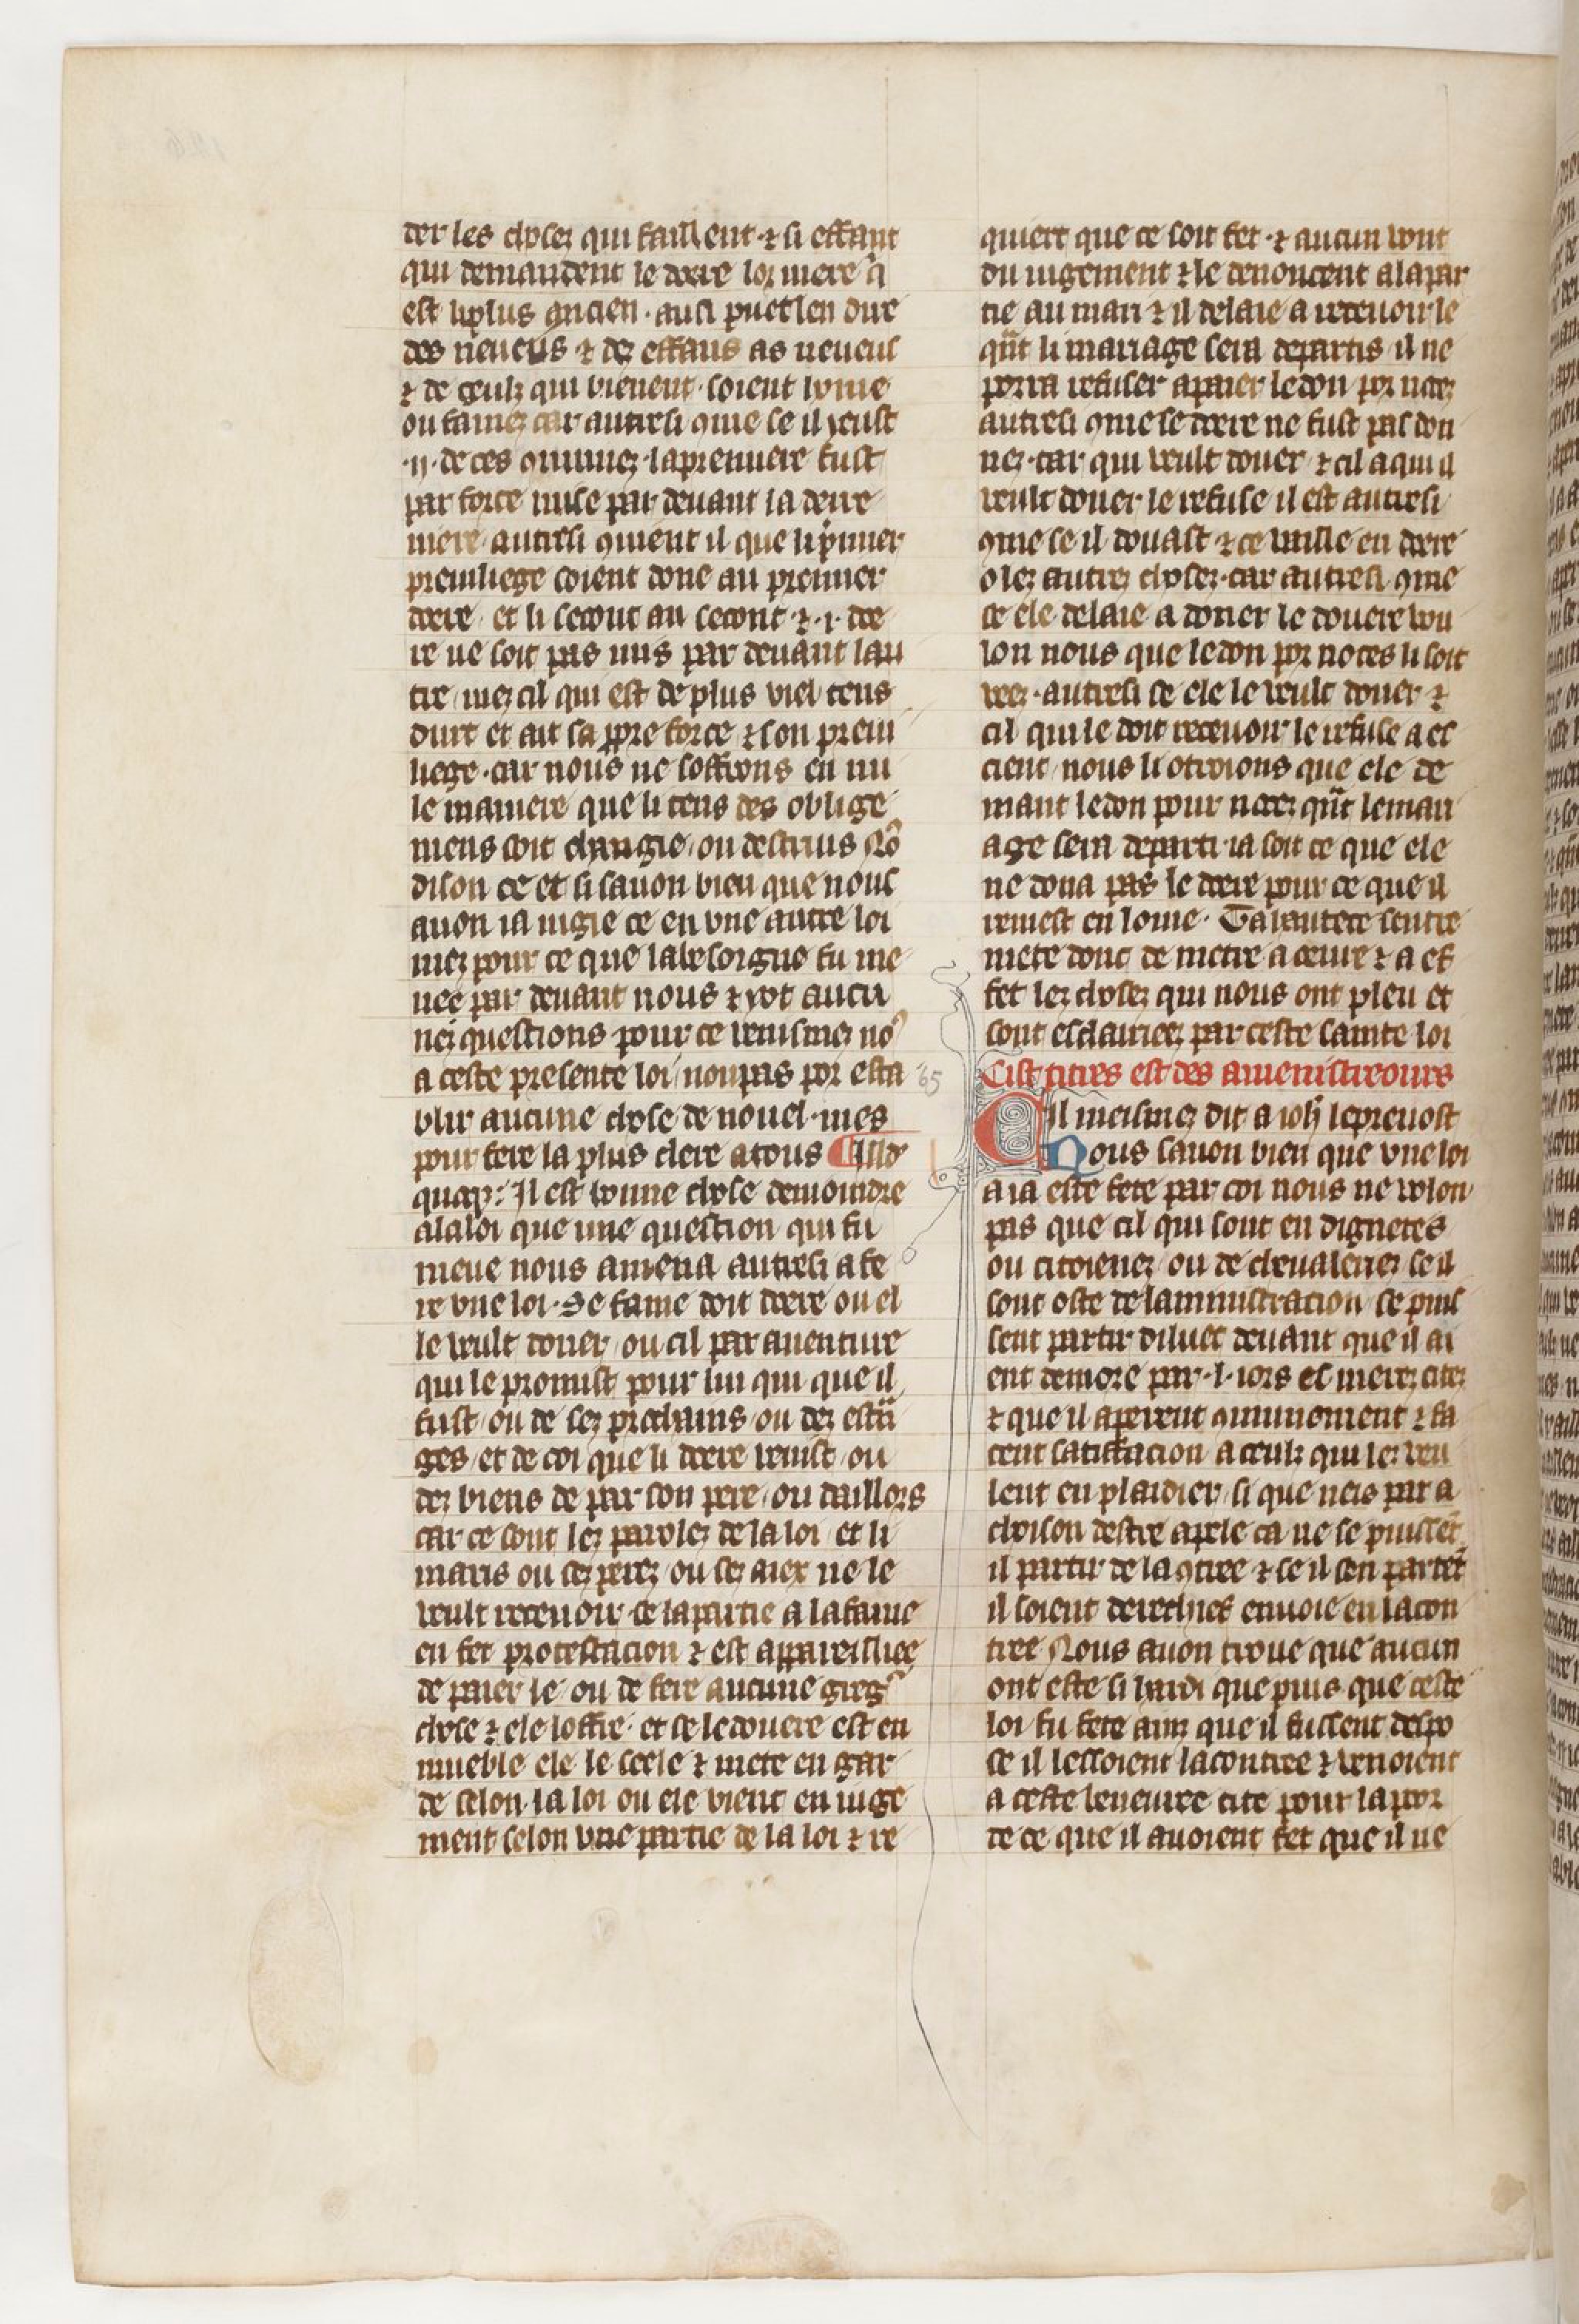 der les choses qui faillent ⁊ si effant
qui demandent le doere lor mere q̃
est li plus ancien. ausi puet len dire
des neueus ⁊ dez effans as neueus
⁊ de ceulz qui vienent. soient home
ou famez car autresi 9me se il i eust
.ij. de ces 9munez. la premiere fust
par force mise par deuant la derre
niere. autresi 9uient il que li p̾mier
preuiliege soient done au premier
doere. et li secont au secont. ⁊ .i. doe
re ne soit pas mis par deuant lau
tre mez cil qui est de plus viel tens
durt et ait sa ppre force ⁊ son preui
liege. car nous ne soffrons en nu
le maniere que li tens des oblige
mens soit changie. ou destruis No9
dison ce et si sauon bien que nous
auon ia iugie ce en vne autre loi
mez pour ce que la besoigne fu me
nee par deuant nous ⁊ i ot aucu
nez questions pour ce venismez no9
a ceste presente loi non pas por esta
blir aucune chose de nouel. mes
pour fere la plus clere a tous ¶ Illd̾
quoq3. Il est bonne chose de moindre
a la loi que une question qui fu
meue nous amena autresi a fe
re vne loi. Se fame doit doere ou el
le veult doner. ou cil par auenture
qui le promist pour lui qui que il
fust. ou de sez prochains. ou dez estrã
ges. et de coi que li doere venist. ou
dez biens de par son pere. ou daillors
car ce sont lez parolez de la loi. et li
maris ou sez perez. ou sez aiex ne le
veult receuoir. se la partie a la fame
en fet protestacion ⁊ est appareilliee
de paier le. ou de fere aucune greg̾
chose ⁊ ele loffre. et se le douere est en
mueble ele le seele ⁊ mete en gar
de selon la loi ou ele vient en iuge
ment selon vne partie de la loi ⁊ re
quiert que ce soit fet. ⁊ aucun vont
du iugement ⁊ le denoncent a la par
tie au mari ⁊ il delaie a receuoir le
qũt li mariage sera departis il ne
porra refuser a paier le don por nocez
autresi 9me se doere ne fust pas don
nez. car qui veult doner. ⁊ cil a qui il
veult doner le refuse il est autresi
9me se il donast ⁊ ce vaille en doere
o lez autrez chosez. car autresi 9me
se ele delaie a doner le douere vou
lon nous que le don por noces li soit
veez. autresi se ele le veult doner ⁊
cil qui le doit receuoir le refuse a es
cient nous li otroions que ele de
mant le don pour nocez qũt le mari
age sera departi. ia soit ce que ele
ne dona pas le doere pour ce que il
remest en lome. Ta hautece sentre
mete donc de metre a oeure ⁊ a ef
fet lez chosez qui nous ont pleu et
sont esclairiees par ceste sainte loi
Cist titres est des amenistreours
65
Cil meismez dit a ioħ le preuost
Nous sauon bien que vne loi
a ia este fete par coi nous ne volon
pas que cil qui sont en dignetes
ou citoienez. ou de cheualeriez se il
sont oste de laministracion se puis
sent partir diluec deuant que il ai
ent demore par .l. iors es meiez citez
⁊ que il aperent 9munement ⁊ fa
cent satiffacion a ceulz qui lez veu
lent en plaidier. si que neis par a
choison destre apele ca ne se puissẽt
il partir de la 9tree ⁊ se il sen partẽt
il soient derechief enuoie en la con
tree. Nous auon troue que aucun
ont este si hardi que puis que ceste
loi fu fete ainz que il fussent despo
se il lessoient la contree ⁊ venoient
a ceste beneuree cite pour la por
te ce que il auoient fet que il ne